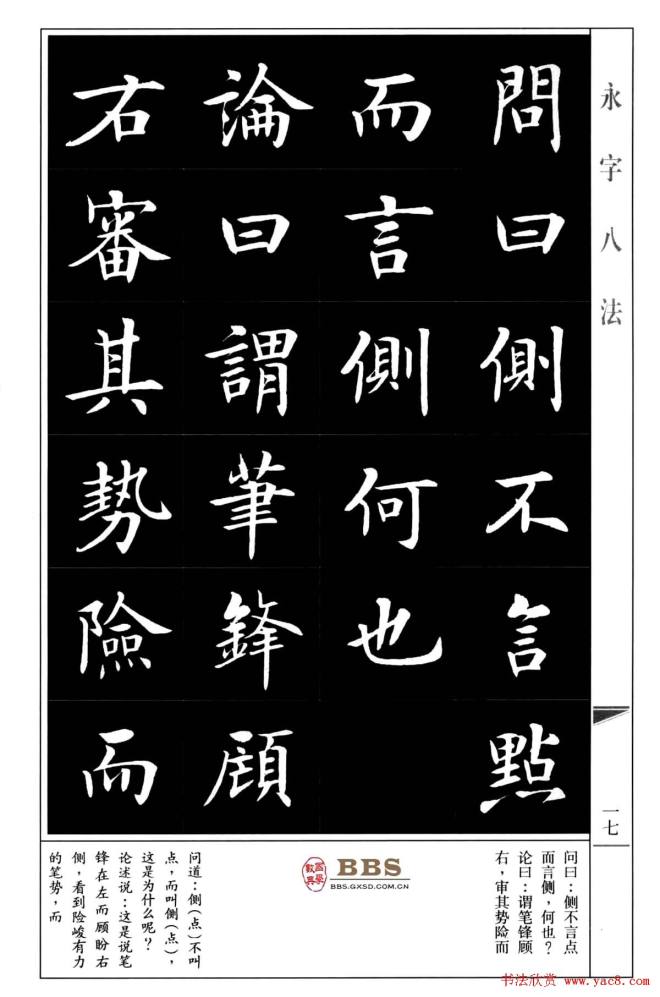 永字八法
問曰側不言點
而言側何也
論曰謂筆鋒顧
右審其勢險而
一七
问曰：侧不言点
而言侧，何也？
论曰：谓笔锋顾
右，审其势险而
BBS
BBS.GXSD.COM.CN
问道：侧(点)不叫
点，而叫侧(点)，
这是为什么呢？
论述说：这是说笔
锋在左而顾盼右
侧，看到险峻有力
的笔势，而
书法欣赏 www.yac8.com